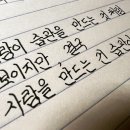 사람이 습관을 만드는 것처럼
보이지만, 결국
사람을 만드는 건 습관